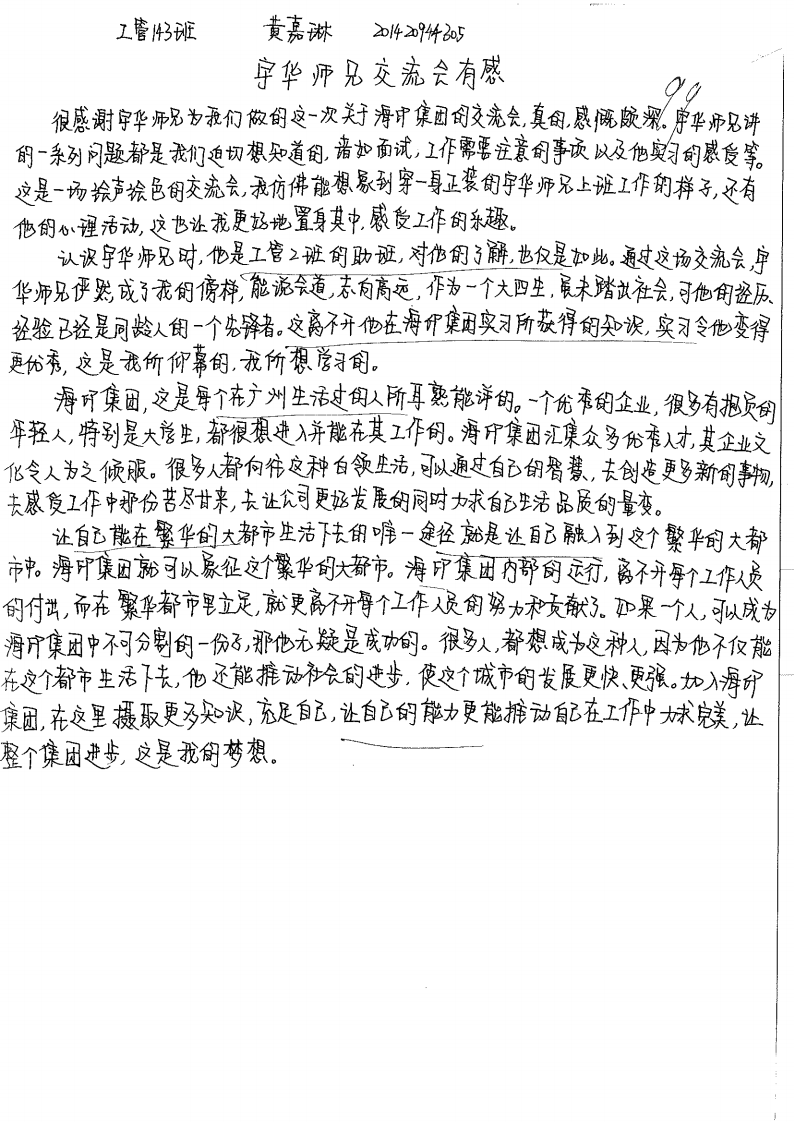 工管143班 黄嘉琳 201420944305
宇华师兄交流会有感
99
很感谢宇华师兄为我们做的这一次关于海印集团的交流会,真的,感慨颇深。宇华师兄讲
的一系列问题都是我们迫切想知道的,诸如面试,工作需要注意的事项以及他实习的感受等。
这是一场绘声绘色的交流会,我仿佛能想象到穿一身正装的宇华师兄上班工作的样子,还有
他的心理活动,这也让我更好地置身其中,感受工作的乐趣。
认识宇华师兄时,他是工管2班的助班,对他的了解,也仅是如此。通过这场交流会,宇
华师兄俨然成了我的傍样,能说会道,志向高远,作为一个大四生,虽未踏出社会,可他的经历、
经验已经是同龄人的一个先锋者。这离不开他在海印集团实习所获得的知识,实习令他变得
更优秀,这是我所仰慕的,我所想学习的。
海印集团,这是每个在广州生活过的人所耳熟能详的。一个优秀的企业,很多有抱负的
年轻人,特别是大学生,都很想进入并能在其工作的。海印集团汇集众多优秀人才,其企业文
化令人为之倾服。很多人都向往这种白领生活,可以通过自己的智慧,去创造更多新的事物,
去感受工作中那份苦尽甘来,去让公司更好发展的同时力求自己生活品质的量变。
让自己能在繁华的大都市生活下去的唯一途径就是让自己融入到这个繁华的大都
市中。海印集团就可以象征这个繁华的大都市。海印集团内部的运行,离不开每个工作人员
的付出,而在繁华都市里立足,就更离不开每个工作人员的努力和贡献了。如果一个人,可以成为
海印集团中不可分割的一份子,那他无疑是成功的。很多人,都想成为这种人,因为他不仅能
在这个都市生活下去,他还能推动社会的进步,使这个城市的发展更快、更强。加入海印
集团,在这里摄取更多知识,充足自己,让自己的能力更能推动自己在工作中力求完美,让
整个集团进步,这是我的梦想。